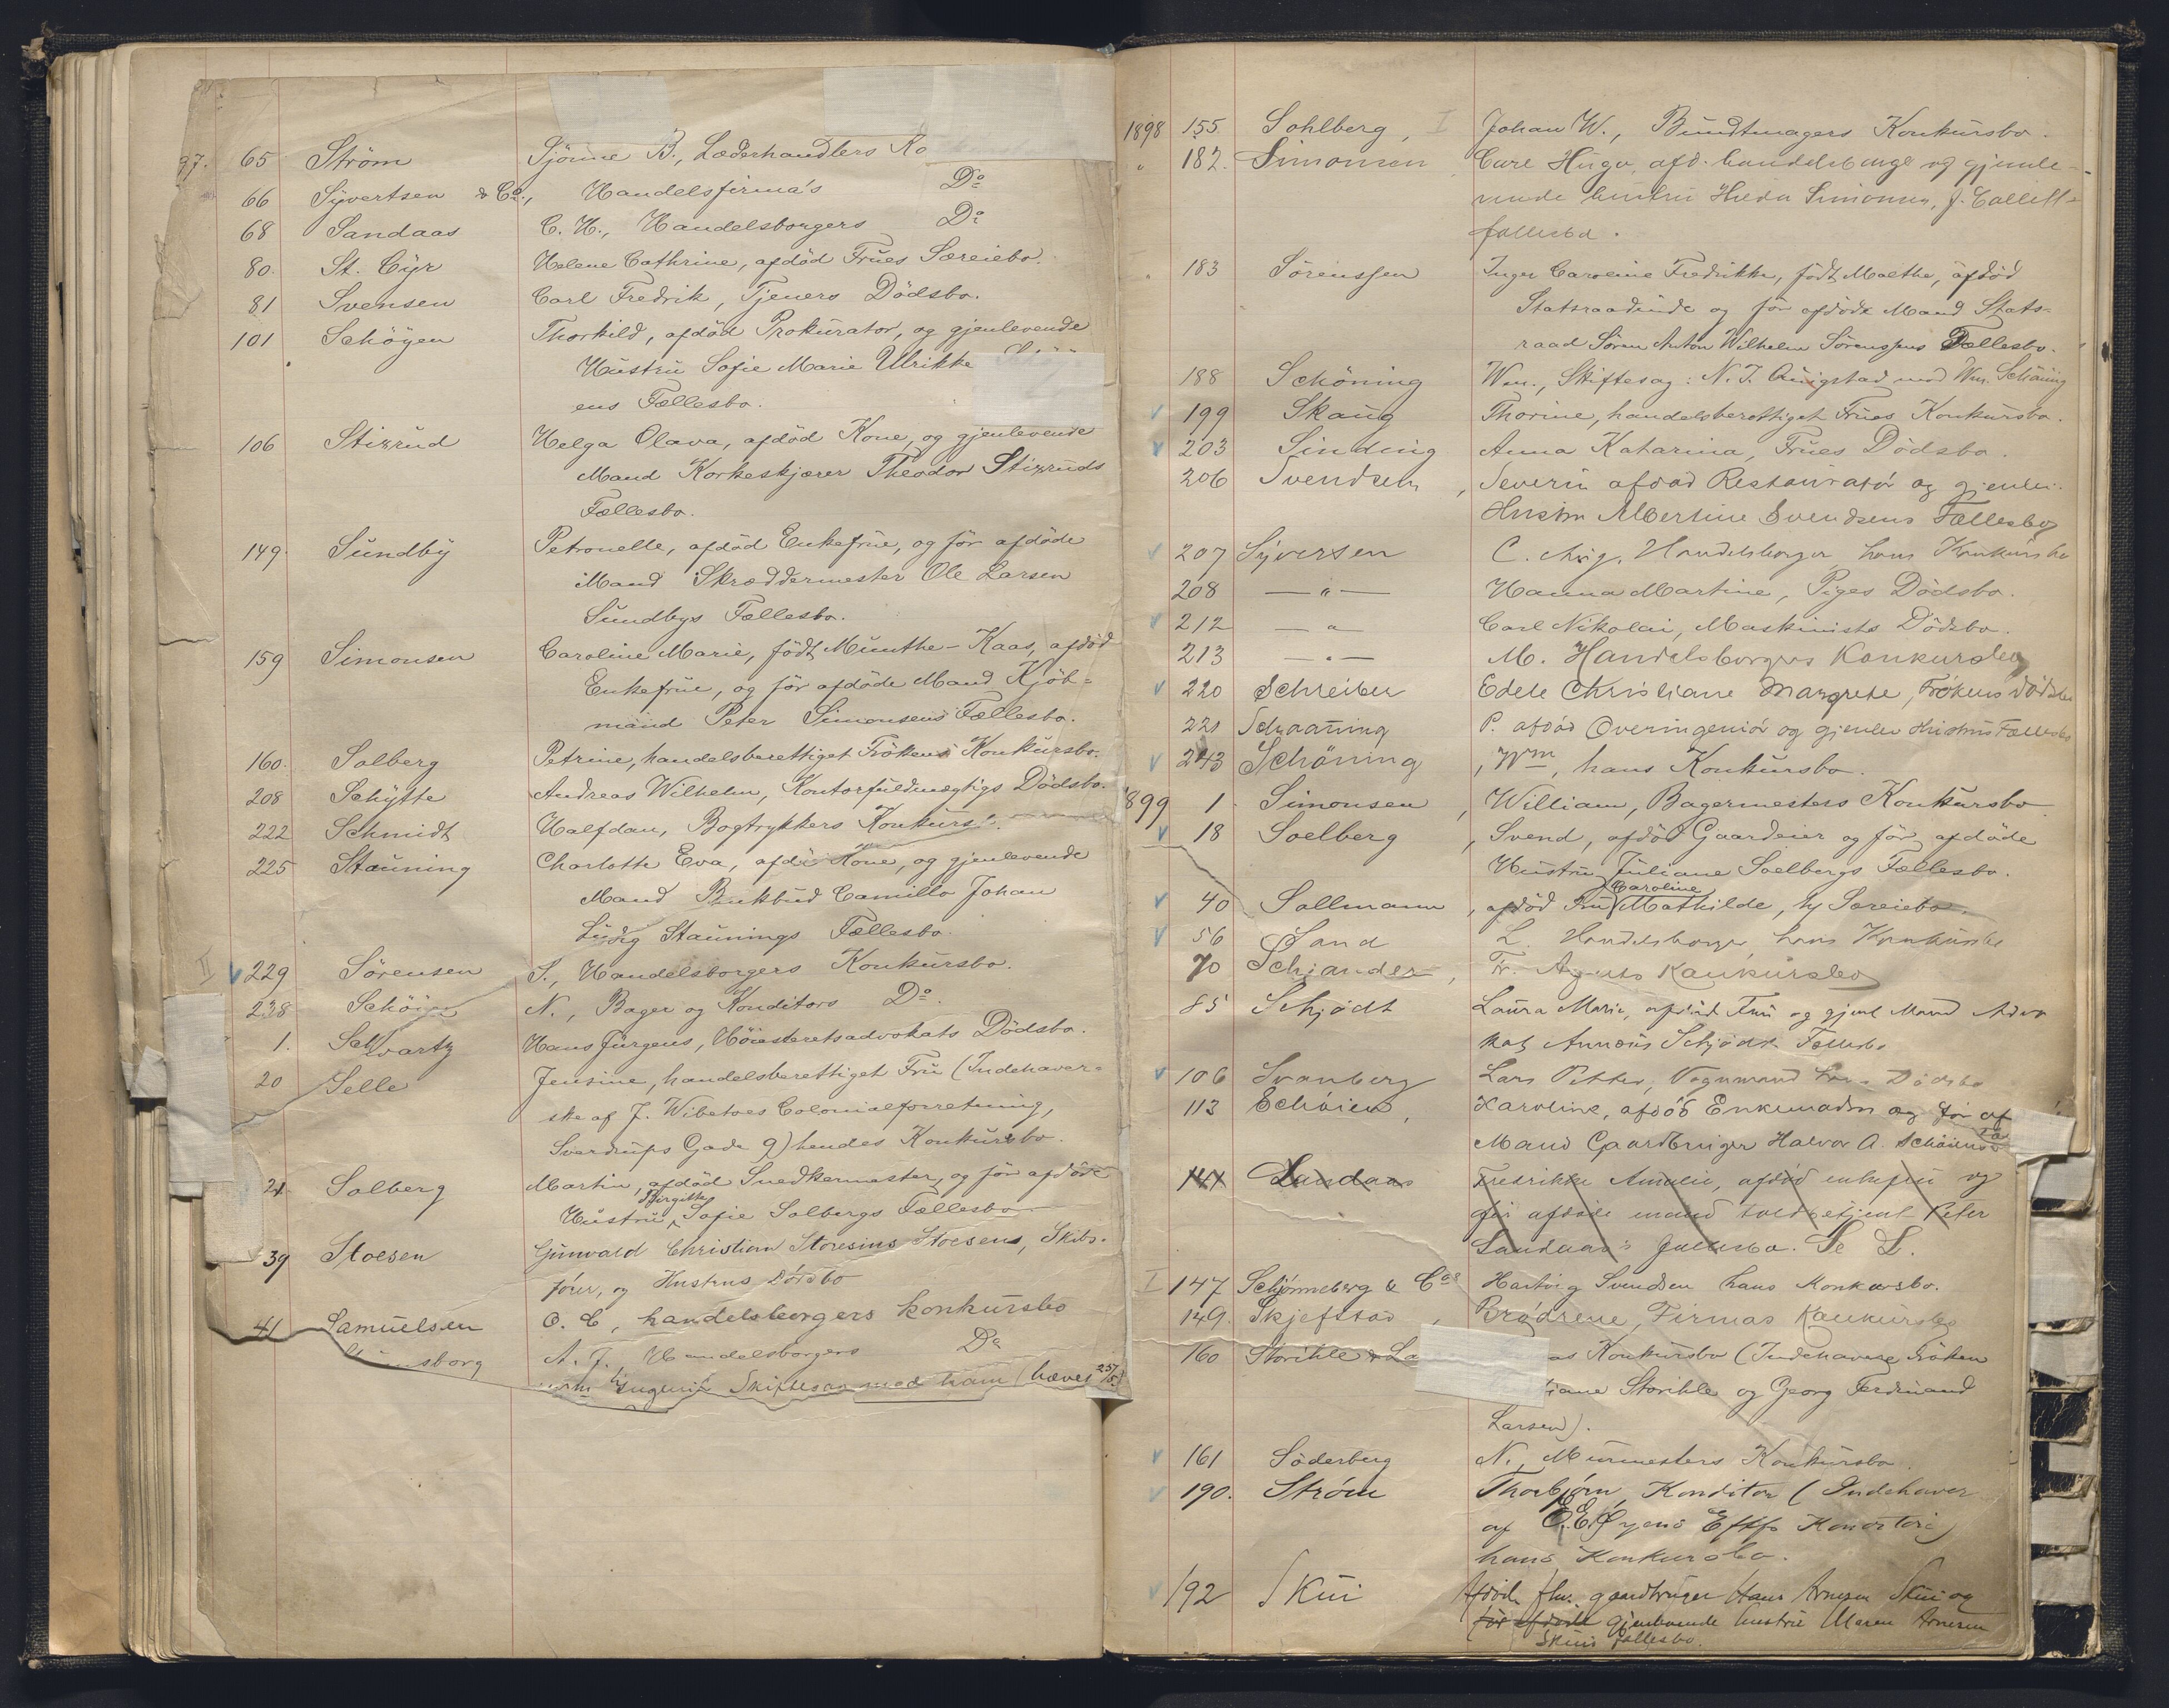 97. 65 Ström Sjönne B., Læderhandlers Ko
66 Syvertsen & Co., Handelsfirma's Do
68 Sandaas C. H., Handelsborgers Do
80. St. Cyr Helene Cathrine, afdöd Frues Særeiebo.
81 Svensen Carl Fredrik, Tjeners Dödsbo.
101 Schöyen Thorkild, afdöd Prokurator, og gjenlevende
Hustru Sofie Marie Ulrikke
ens Fællesbo.
106 Stixrud Helga Olava, afdöd Kone, og gjenlevende
Mand Korkeskjærer Theodor Stixruds
Fællesbo.
149. Sundby Petronelle, afdöd Enkefrue, og för afdöde
Mand Skræddermester Ole Larsen
Sundbys Fællesbo.
159 Simonsen Caroline Marie, födt Munthe-Kaas, afdöd
Enkefrue, og för afdöde Mand Kjöb-
mand Peter Simonsens Fællesbo.
160. Solberg Petrine, handelsberettiget Frökens Konkursbo.
208 Schytte Andreas Wilhelm, Kontorfuldmægtigs Dödsbo.
222 Schmidt Halfdan, Bogtrykkers Konkurs
225 Stauning Charlotte Eva, afdö Kone, og gjenlevende
Mand Camillo Johan
Ludvig Staunings Fællesbo.
II 229 Sörensen S., Handelsborgers Konkursbo.
238 Schöien N., Bager og Konditors Do.
1. Schwartz Hans Jürgens, Höiesteretsadvokats Dödsbo.
20 Selle Jensine, handelsberettiget Fru (Indehaver-
ske af J. Wibetoes Colonialforretning,
Sverdrups Gade 9) hendes Konkursbo.
21 Solberg Martin, afdöd Snedkermester, og för afdöde
Hustru Birgitte Sofie Solbergs Fællesbo
39 Stoesen Gunvald Christian Storesins Stoesens, Skibs-
förer, og Hustrus Dödsbo
41 Samuelsen O. C, handelsborgers konkursbo
sborg A. J., Handelsborgers Do
Skiftesag mod ham (hævet 25/5)
1898 155. Sohlberg, I Johan W., Bundtmagers Konkursbo.
" 182. Simonsen Carl Hugo, afd. handelsborger og gjenle-
vende hustru Hulda Simonsen, f. Collett
fællesbo.
" 183 Sörenssen Inger Caroline Fredrikke, födt Malthe, afdöd
Statsraadinde og för afdöde Mand Stats-
raad Sören Anton Wilhelm Sörenssens Fællesbo.
188 Schöning Wm., Skiftesag: N. J. Qvigstad mod Wm. Schöning
199 Skaug Thorine, handelsberettiget Frues Konkursbo.
203 Sinding Anna Katarina, Frues Dödsbo.
206 Svendsen, Severin afdöd Restauratör og gjenlev.
Hustru Albertine Svendsens Fællesbo
207 Syversen C. Aug. Handelsborger, hans Konkursbo
208 — " — Hanna Martine, Piges Dödsbo.
212 — " — Carl Nikolai, Maskinists Dödsbo.
213 — " — M. Handelsborgers Konkursbo
220 Schreiber Edele Christiane Margrete, Frökens Dödsbo
221 Schaaning P. afdöd Overingeniör og gjenlev Hustrus Fællesbo
243 Schöning, Wm, hans Konkursbo.
1899 1. Simonsen, William, Bagermesters Konkursbo
18 Soelberg, Svend, afdöd Gaardeier og för afdöde
Hustru Juliane Soelbergs Fællesbo.
40 Sollmann, afdöd Fru Caroline Mathilde, h/ Særeiebo.
56 Sand L. Handelsborger, hans Konkursbo
70 Schjander, Fr. Agents Konkursbo
85 Schjödt Laura Marie, afdöd Fru og gjenl Mand Advo
kat Annæus Schjödts Fællesbo
106 Svanberg Lars Petter, Vognmand hans Dödsbo
113 Schöien, Karoline, afdöd Enkemadm og för af
Mand Gaardbruger Halvor A. Schöiens Fæ
141 Sandaas Fredrikke Amalie, afdöd enkefru og
för afdöde mand toldbetjent Peter
Sandaas's fællesbo. Se L.
I 147 Schjönneberg & Co's Hartvig Svendsen hans Konkursbo.
149. Skjefstad, Brödrene, Firmas Konkursbo
160 Storihle & La as Konkursbo (Indehavere Fröken
iane Storihle og Georg Ferdinand
Larsen).
161 Söderberg N., Murmesters Konkursbo.
190. Ström Thorbjörn, Konditor (Indehaver
af O. E. Öyens Eftfs Konditori)
hans Konkursbo.
192 Skui Afdöde fhv. gaardbruger Hans Arnesen Skui og
för afdöde gjenlevende hustru Maren Arnesen
Skuis fællesbo.